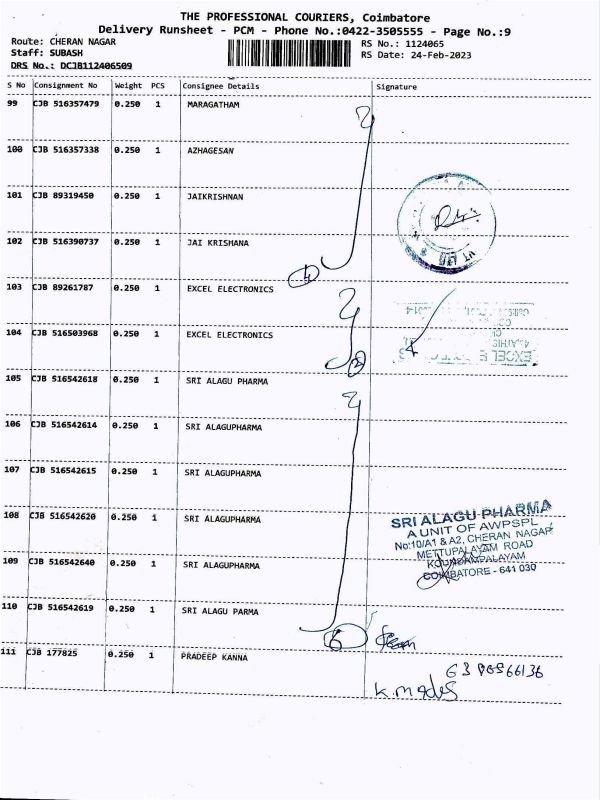 THE PROFESSIONAL COURIERS, Coimbatore
Delivery Runsheet - PCM - Phone No.:0422-3505555 - Page No.:9
Route: CHERAN NAGAR
RS No.: 1124065
Staff: SUBASH
RS Date: 24-Feb-2023
DRS No.: DCJB112406509
S No Consignment No Weight PCS Consignee Details Signature
99 CJB 516357479 0.250 1 MARAGATHAM
100 CJB 516357338 0.250 1 AZHAGESAN
101 CJB 89319450 0.250 1 JAIKRISHNAN
102 CJB 516390737 0.250 1 JAI KRISHANA
4
103 CJB 89261787 0.250 1 EXCEL ELECTRONICS
104 CJB 516503968 0.250 1 EXCEL ELECTRONICS
2
105 CJB 516542618 0.250 1 SRI ALAGU PHARMA
106 CJB 516542614 0.250 1 SRI ALAGUPHARMA
107 CJB 516542615 0.250 1 SRI ALAGUPHARMA
108 CJB 516542620 0.250 1 SRI ALAGUPHARMA
SRI ALAGU PHARMA
A UNIT OF AWPSPL
No:10/A1 & A2, CHERAN NAGAR
METTUPALAYAM ROAD
KOUNDAMPALAYAM
COIMBATORE - 641 030
109 CJB 516542640 0.250 1 SRI ALAGUPHARMA
110 CJB 516542619 0.250 1 SRI ALAGU PARMA
6
111 CJB 177825 0.250 1 PRADEEP KANNA